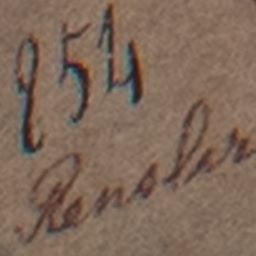 854
Renslar